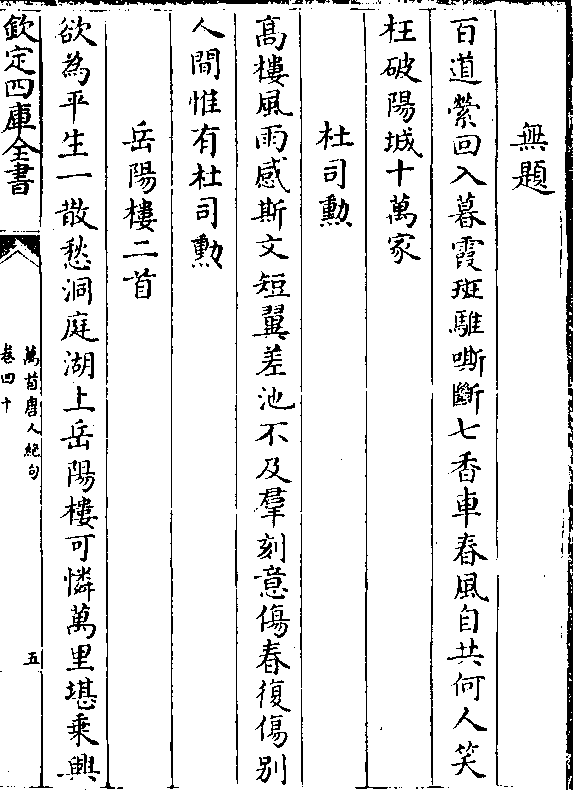 無題
百道縈回入暮霞班騅嘶斷七香車春風自共何人笑
枉破陽城十萬家
杜司勲
髙樓風雨感斯文短翼差池不及羣刻意傷春復傷别
人間惟有杜司勲
岳陽樓二首
欲為平生一散愁洞庭湖上岳陽樓可憐萬里堪乗興
欽定四庫全書
萬首唐人絶句
卷四十
五